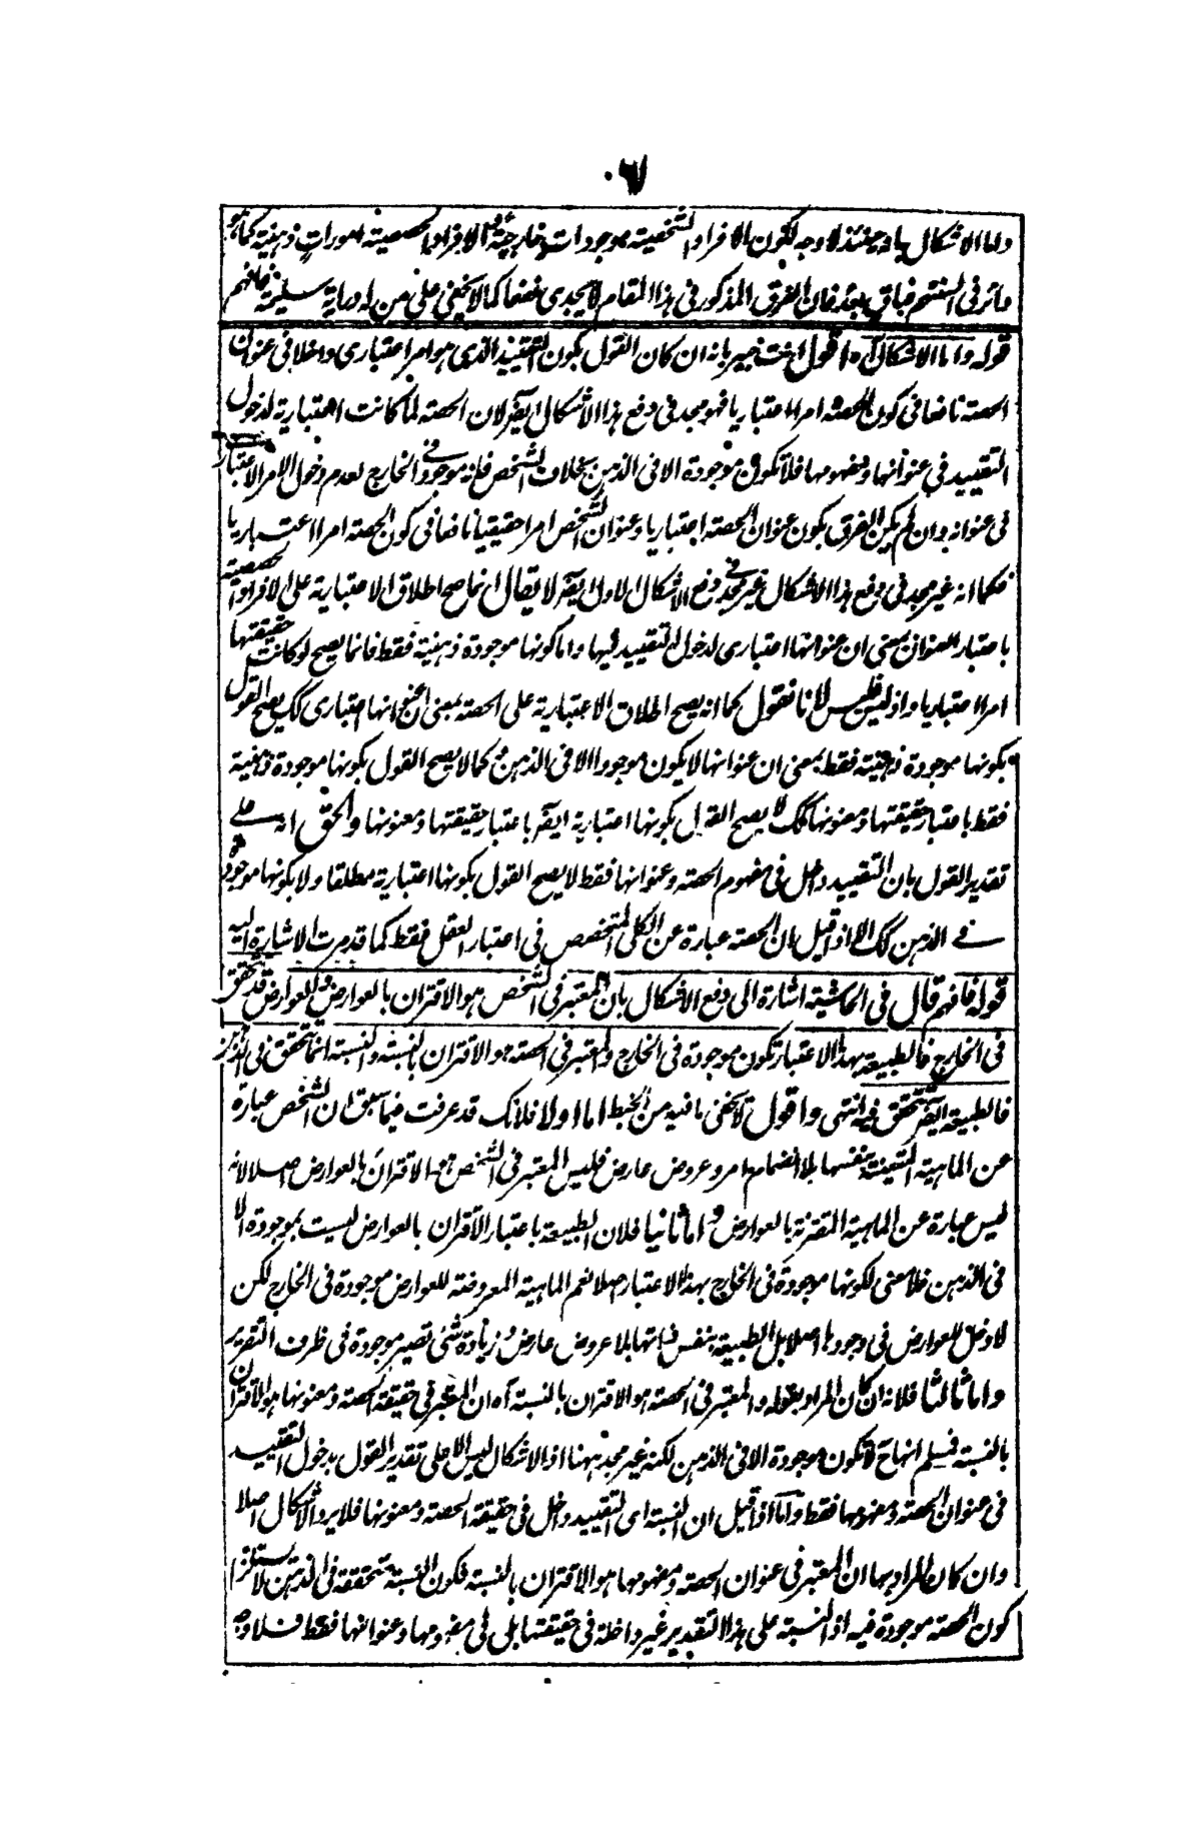 ٦٧
واما الاشكال بانه حينئذ لا وجه لكون الافراد الشخصية موجودات خارجية والافراد الحصصية امورات ذهنية كما هو
مآثر في المنتقم فباق بعد فان الفرق المذكور في هذا المقام لا يجدي نفعا كما لا يخفى على من له دراية سليمة فافهم
قوله واما الاشكال آه اقول انت خبير بانه ان كان القول بكون التقييد الذي هو امر اعتباري داخلا في عنوان
الحصة نافعا في كون الحصة امرا اعتباريا فهو مجد في دفع هذا الاشكال ايضا لان الحصة لما كانت اعتبارية لدخول
التقييد في عنوانها ومفهومها فلا تكون موجودة الا في الذهن بخلاف الشخص فانه موجود في الخارج لعدم دخول الامر الاعتباري
في عنوانه وان لم يكن الفرق بكون عنوان الحصة اعتباريا وعنوان الشخص امرا حقيقيا نافعا في كون الحصة امرا اعتباريا
فكما انه غير مجد في دفع هذا الاشكال غير مجد في دفع الاشكال الاول ايضا لا يقال انما صح اطلاق الاعتبارية على الافراد الحصصية
باعتبار العنوان بمعنى ان عنوانها اعتباري لدخول التقييد فيها واما كونها موجودة ذهنية فقط فانما يصح لو كانت حقيقتها
امرا اعتباريا واذ ليس فليس لانا نقول كما انه يصح اطلاق الاعتبارية على الحصة بمعنى ان عنوانها اعتباري كك يصح القول
بكونها موجودة ذهنية فقط بمعنى ان عنوانها لا يكون موجودا الا في الذهن وكما لا يصح القول بكونها موجودة ذهنية
فقط باعتبار حقيقتها ومعنونها كك لا يصح القول بكونها اعتبارية ايضا باعتبار حقيقتها ومعنونها والحق انه على
تقدير القول بان التقييد داخل في مفهوم الحصة وعنوانها فقط لا يصح القول بكونها اعتبارية مطلقا ولا بكونها موجودة
في الذهن كك الا اذا قيل ان الحصة عبارة عن الكلي المتخصص في اعتبار العقل فقط كما قد مرت الاشارة اليه
قوله فافهم قال في الحاشية اشارة الى دفع الاشكال بان المعتبر في الشخص هو الاقتران بالعوارض والعوارض قد تحقق
في الخارج فالطبيعة بهذا الاعتبار تكون موجودة في الخارج والمعتبر في الحصة هو الاقتران بالنسبة والنسبة انما تتحقق في الذهن
فالطبيعة ايضا تتحقق فيه انتهى واقول لا يخفى ما فيه من الخبط اما اولا فلانك قد عرفت فيما سبق ان الشخص عبارة
عن الماهية المتعينة بنفسها بلا انضمام امر وعروض عارض فليس المعتبر في الشخص هو الاقتران بالعوارض اصلا لانه
ليس عبارة عن الماهية المقترنة بالعوارض واما ثانيا فلان الطبيعة باعتبار الاقتران بالعوارض ليست بموجودة الا
في الذهن فلا معنى لكونها موجودة في الخارج بهذا الاعتبار اصلا نعم الماهية المعروضة للعوارض موجودة في الخارج لكن
لا دخل للعوارض في وجودها اصلا بل الطبيعة بنفس ذاتها بلا عروض عارض وزيادة شئ تصير موجودة في ظرف التقرر
واما ثالثا فلانه ان كان المراد بقوله والمعتبر في الحصة هو الاقتران بالنسبة آه ان المعتبر في حقيقة الحصة ومعنونها هو الاقتران
بالنسبة فسلم انها ح لا تكون موجودة الا في الذهن لكنه غير مجد ههنا اذ الاشكال ليس الا على تقدير القول بدخول التقييد
في عنوان الحصة ومفهومها فقط واما اذا قيل ان النسبة اى التقييد داخل في حقيقة الحصة ومعنونها فلا يرد الاشكال اصلا
وان كان المراد بها ان المعتبر في عنوان الحصة ومفهومها هو الاقتران بالنسبة فكون النسبة متحققة في الذهن لا يستلزم
كون الحصة موجودة فيه اذ النسبة على هذا التقدير غير داخلة في حقيقتها بل في مفهومها وعنوانها فقط فلا وجه